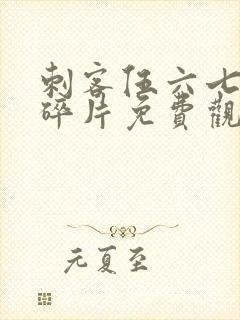 刺客伍六七
碎片免費觀
元夏至